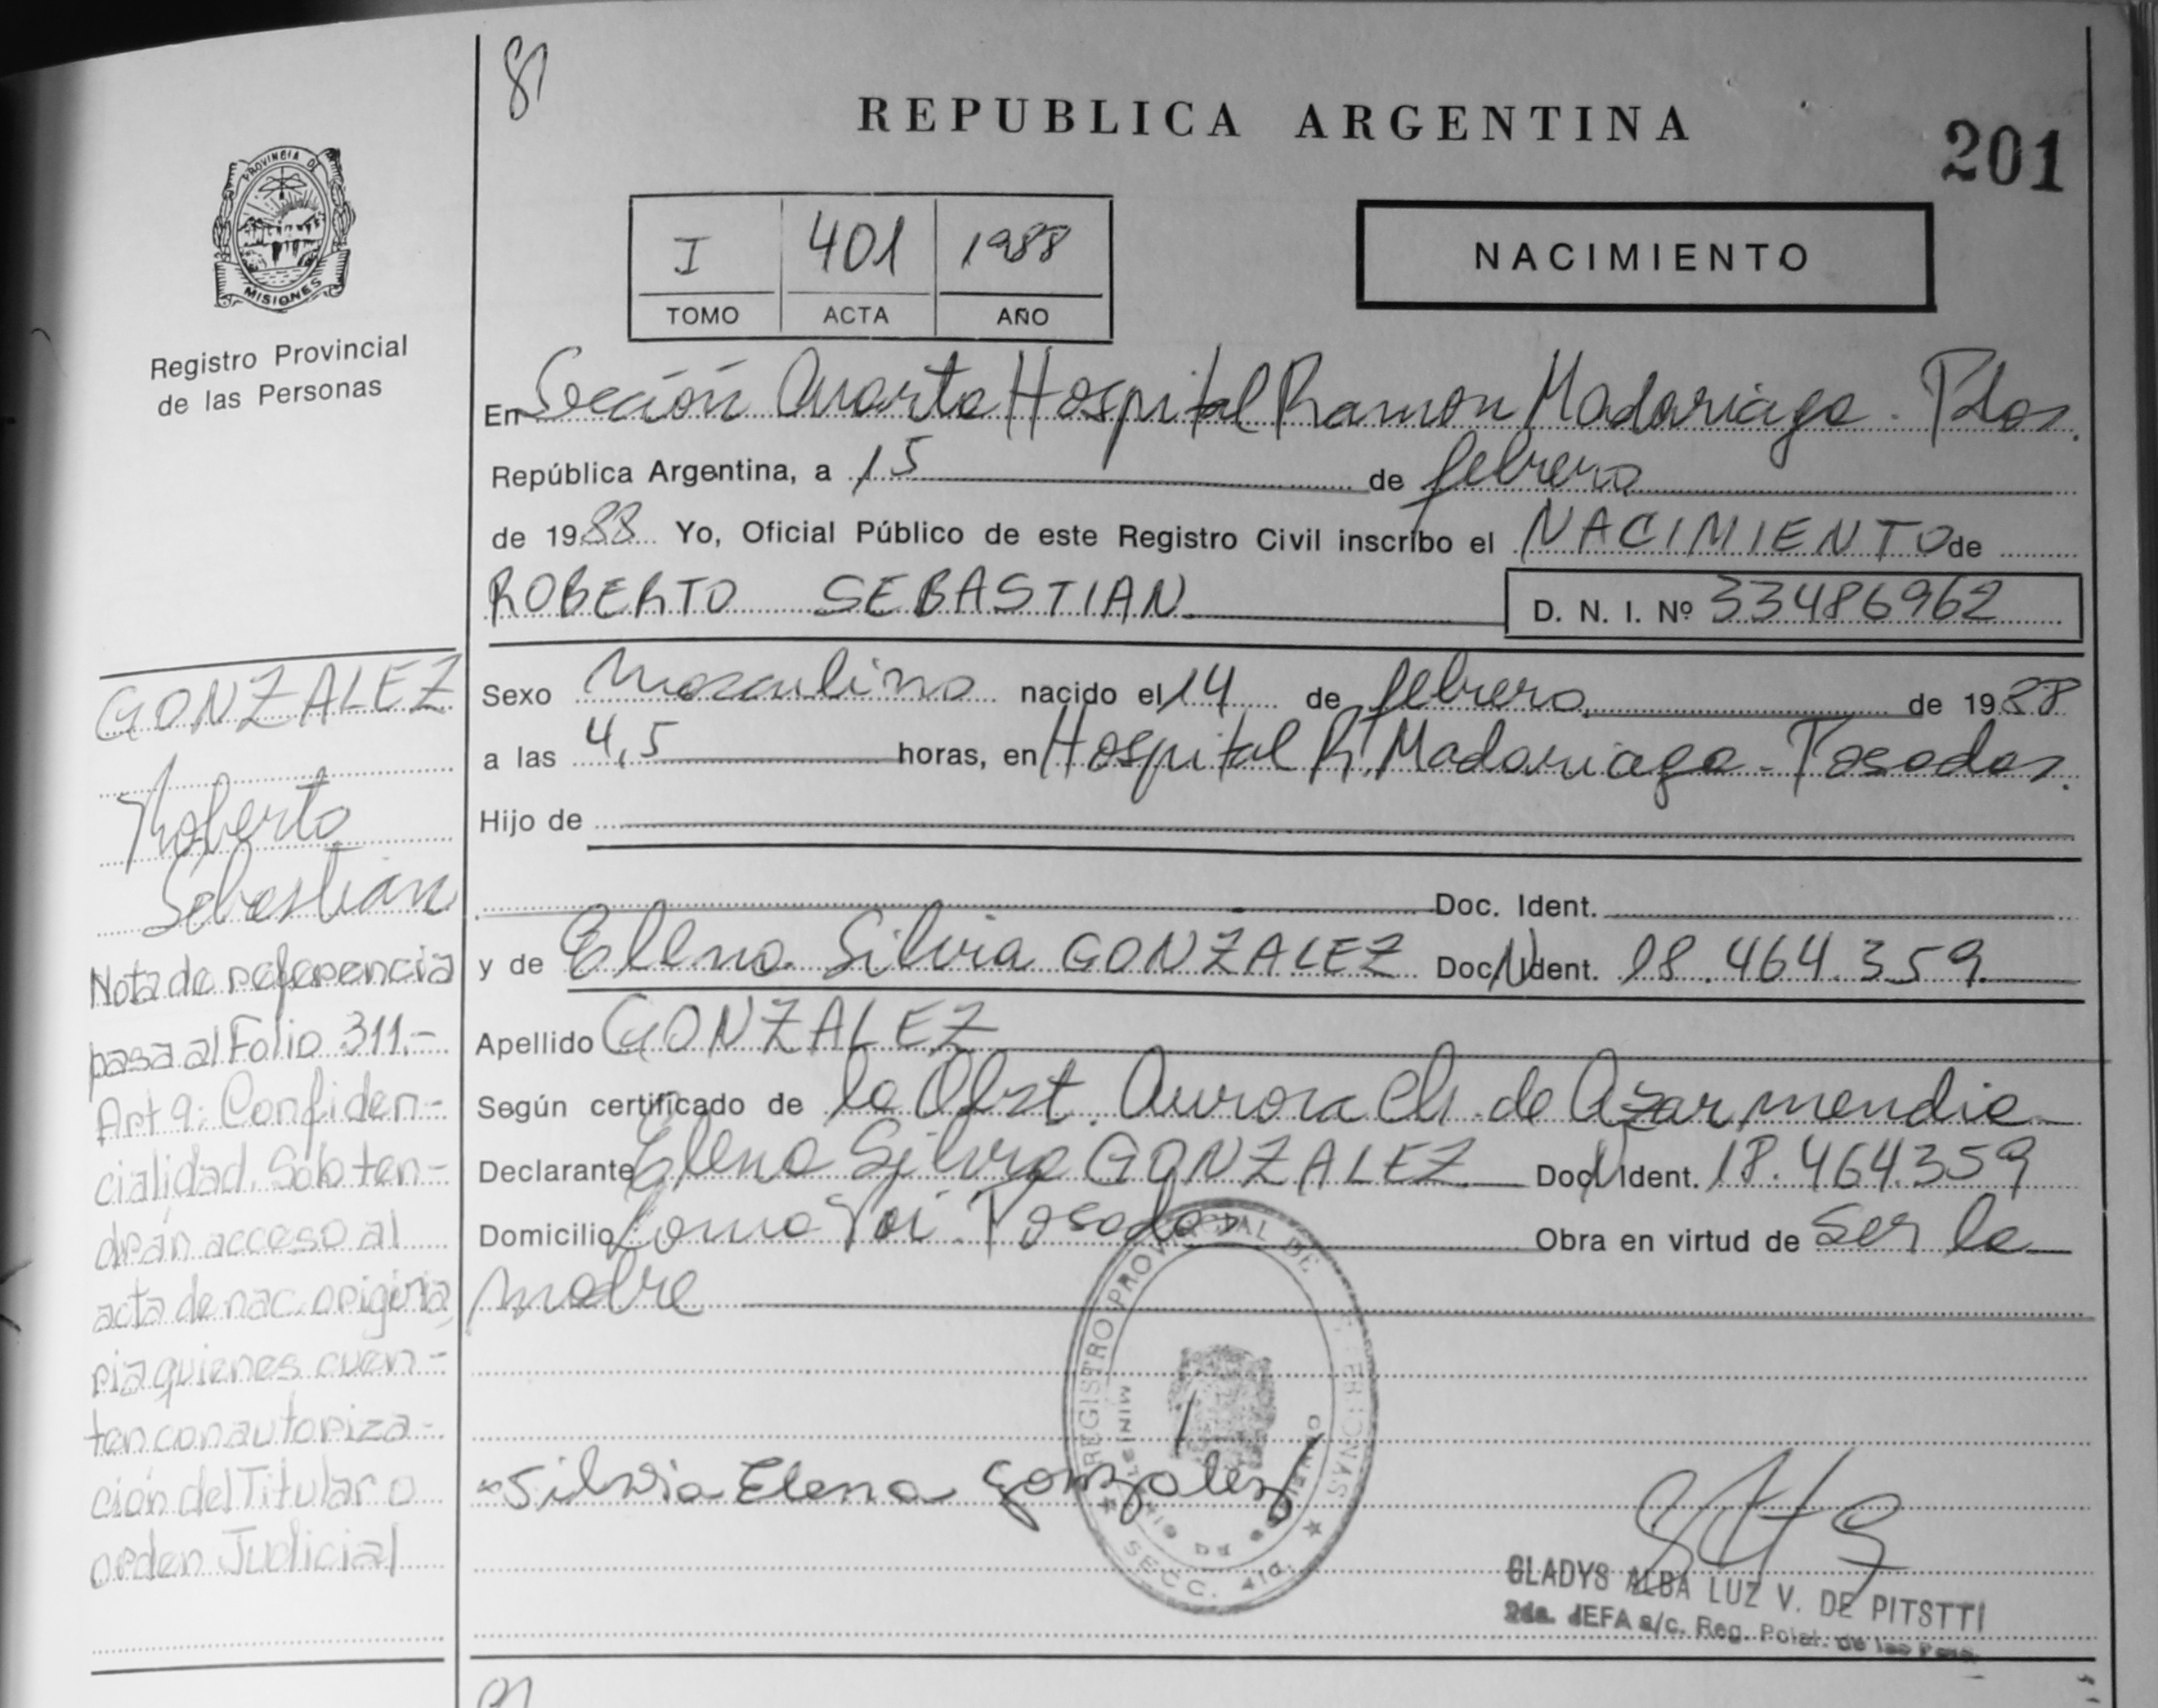 81
REPUBLICA ARGENTINA
201
PROVINCIA DE
MISIONES
Registro Provincial
de las Personas
I 401 1988
TOMO ACTA AÑO
NACIMIENTO
En Sección Cuarta Hospital Ramon Madariaga. Pdas.
República Argentina, a 15 de febrero
de 1988 Yo, Oficial Público de este Registro Civil inscribo el NACIMIENTO de
ROBERTO SEBASTIAN D. N. I. Nº 33486962
Sexo Masculino nacido el 14 de febrero de 1988
a las 4,5 horas, en Hospital R. Madariaga - Posadas.
Hijo de
Doc. Ident.
y de Elena Silvia GONZALEZ Doc. Ident. 18.464.359
Apellido GONZALEZ
Según certificado de la Obst. Aurora Ch. de Azarmendia
Declarante Elena Silvia GONZALEZ Doc. Ident. 18.464.359
Domicilio Loma Poi. Posadas Obra en virtud de ser la
madre
GONZALEZ
Roberto
Sebastián
Nota de referencia
pasa al Folio 311.-
Art 9: Confiden-
cialidad. Solo ten-
drán acceso al
acta de nac. origina
ria quienes cuen-
ten con autoriza-
ción del Titular o
orden Judicial
REGISTRO PROVINCIAL DE PERSONAS
SECC. 4ta.
Silvia Elena Gonzalez
GLADYS ALBA LUZ V. DE PITSTTI
2da. JEFA a/c. Reg. de las